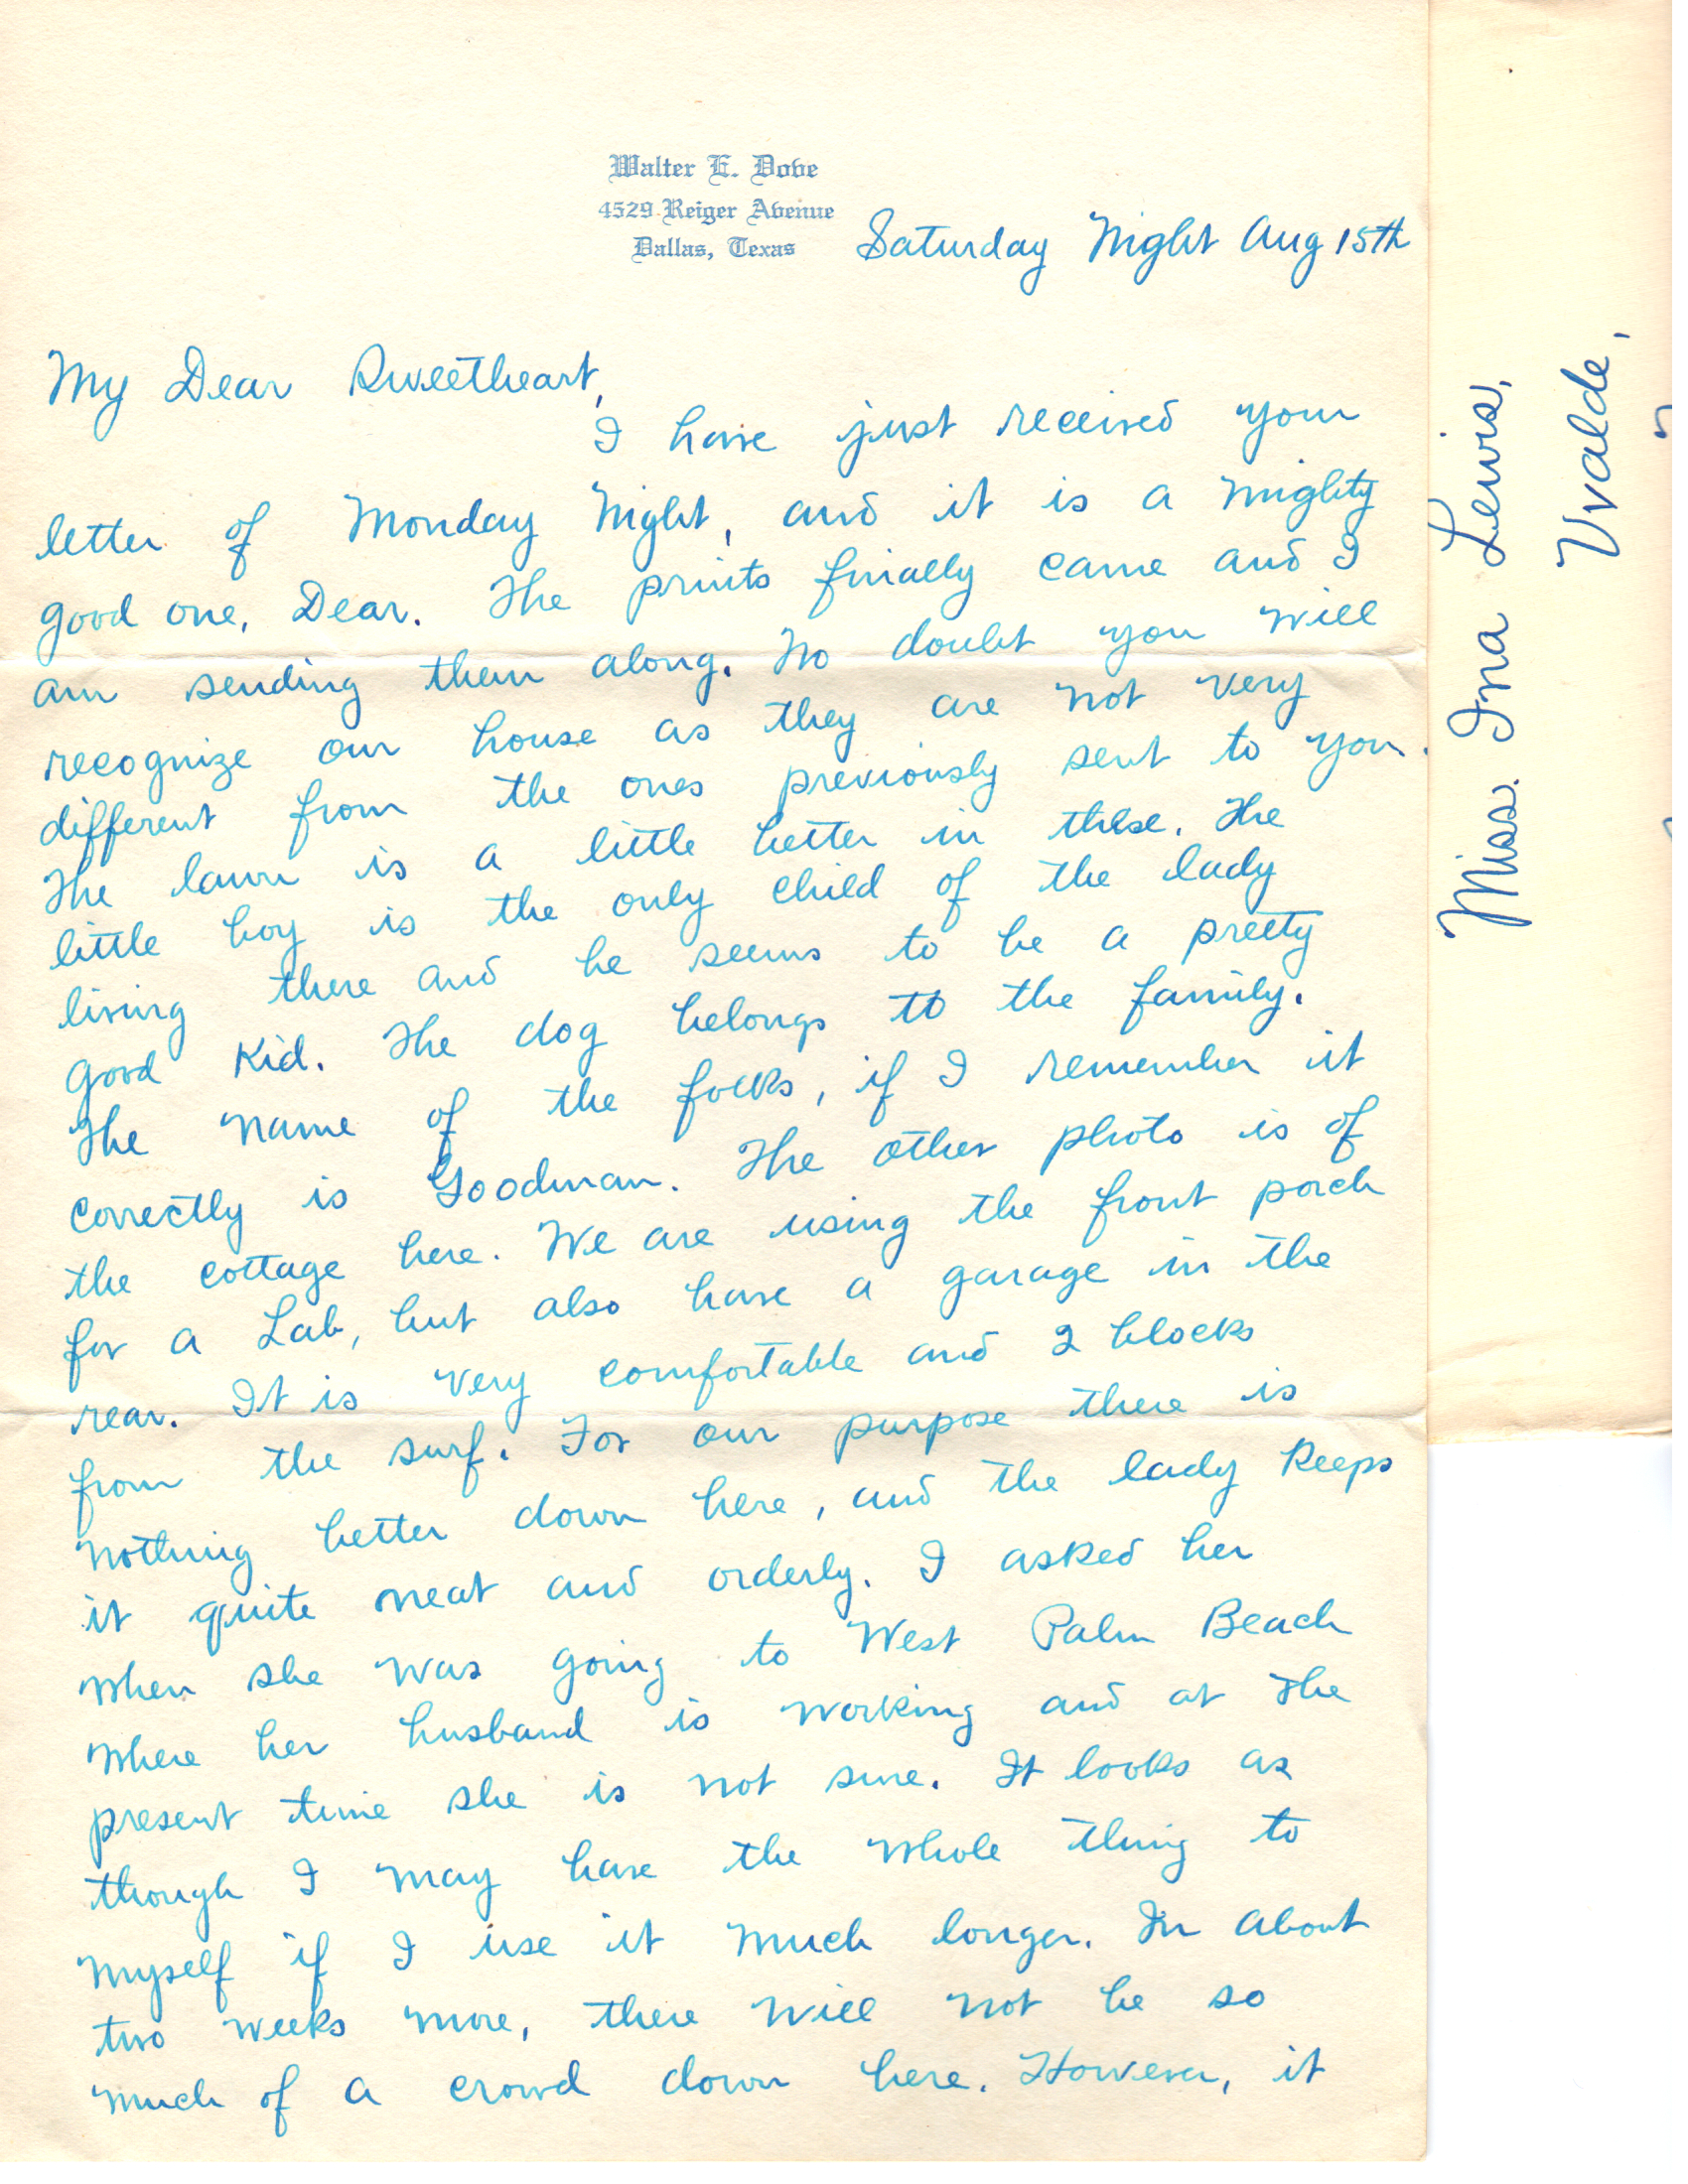 Walter E. Dove
4529 Reiger Avenue
Dallas, Texas
Saturday Night Aug 15th
My Dear Sweetheart,
I have just received your
letter of Monday Night, and it is a mighty
good one, Dear. The prints finally came and I
am sending them along. No doubt you will
recognize our house as they are not very
different from the ones previously sent to you.
The lawn is a little better in these. The
little boy is the only child of the lady
living there and he seems to be a pretty
good kid. The dog belongs to the family.
The name of the folks, if I remember it
correctly is Goodman. The other photo is of
the cottage here. We are using the front porch
for a Lab, but also have a garage in the
rear. It is very comfortable and 2 blocks
from the surf. For our purpose there is
nothing better down here, and the lady keeps
it quite neat and orderly. I asked her
when she was going to West Palm Beach
where her husband is working and at the
present time she is not sure. It looks as
though I may have the whole thing to
myself if I use it much longer. In about
two weeks more, there will not be so
much of a crowd down here. However, it
Miss. Ina Lewis,
Uvalde,